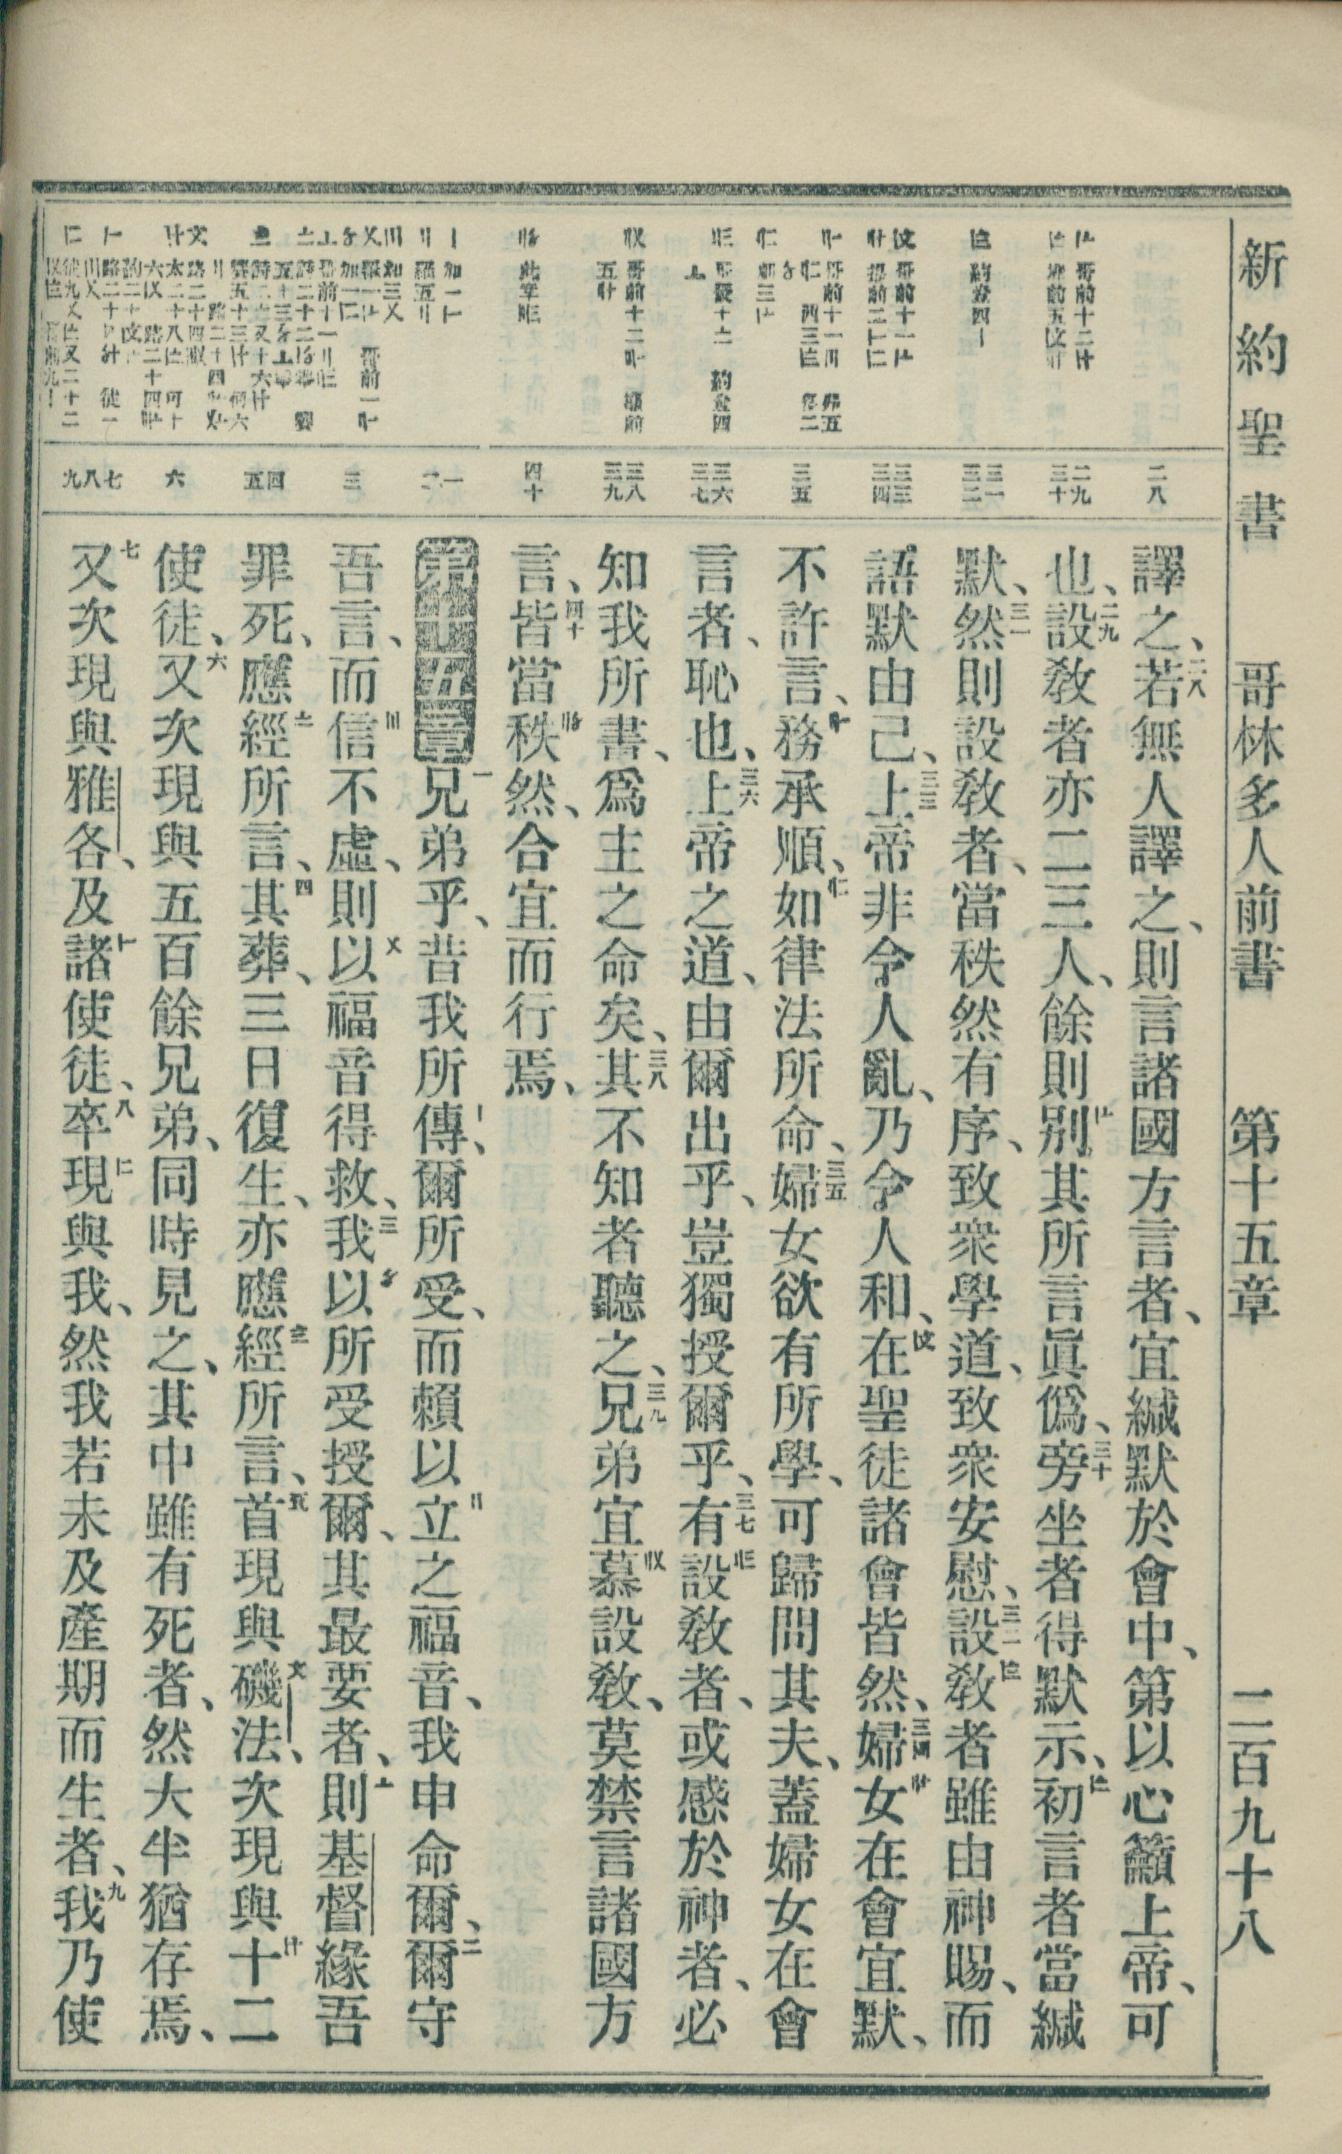 新約聖書 哥林多人前書 第十五章 二百九十八
譯之、二八若無人譯之、則言諸國方言者、宜緘默於會中、第以心籲上帝、可
也、二九設教者亦二三人、餘則別其所言眞僞、三十旁坐者得默示、初言者當緘
默、三一然則設教者、當秩然有序、致衆學道、致衆安慰、三二設教者雖由神賜、而
語默由己、三三上帝非令人亂、乃令人和、在聖徒諸會皆然、三四婦女在會宜默、
不許言、務承順、如律法所命、三五婦女欲有所學、可歸問其夫、蓋婦女在會
言者、恥也、三六上帝之道、由爾出乎、豈獨授爾乎、三七有設教者、或感於神者、必
知我所書、爲主之命矣、三八其不知者聽之、三九兄弟宜慕設教、莫禁言諸國方
言、四十皆當秩然、合宜而行焉、
第十五章 一兄弟乎、昔我所傳、爾所受、而賴以立之福音、我申命爾、二爾守
吾言、而信不虛、則以福音得救、三我以所受授爾、其最要者、則基督緣吾
罪死、應經所言、四其葬、三日復生、亦應經所言、五首現與磯法、次現與十二
使徒、六又次現與五百餘兄弟、同時見之、其中雖有死者、然大半猶存焉、
七又次現與雅各、及諸使徒、八卒現與我、然我若未及產期而生者、九我乃使
二八
二九
三十
三一
三二
三三
三四
三五
三六
三七
三八
三九
四十
一
二
三
四
五
六
七
八
九